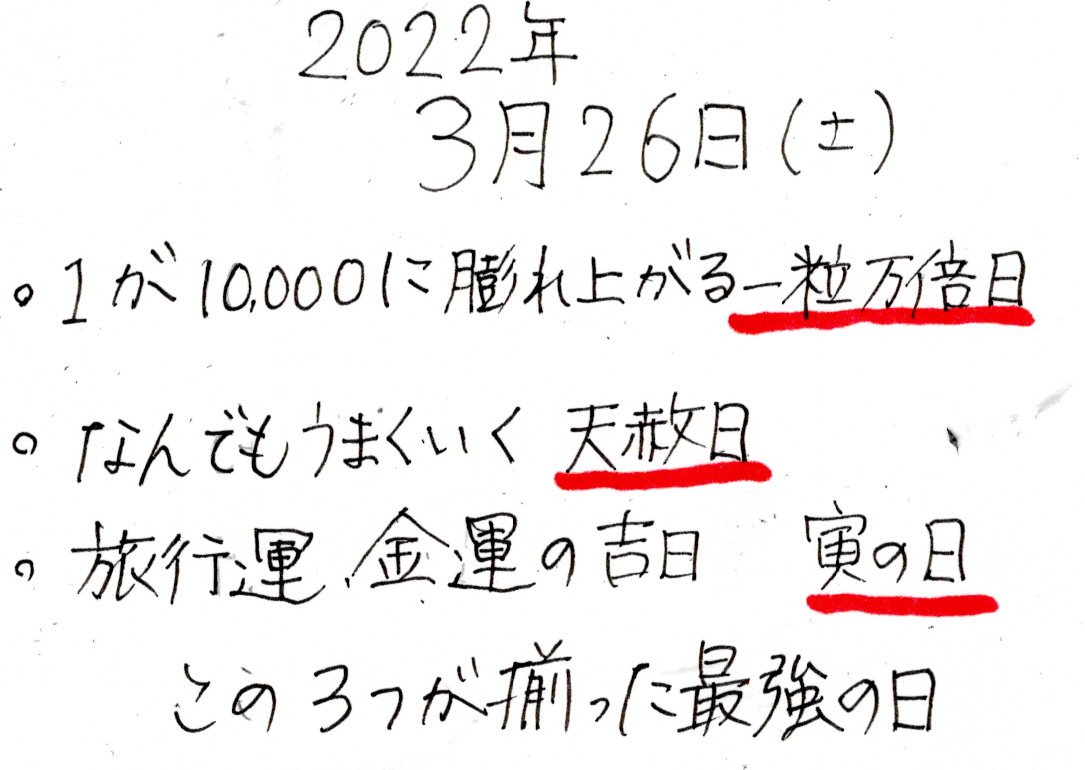 2022年
3月26日(土)
。1が10,000に膨れ上がる一粒万倍日
。なんでもうまくいく 天赦日
。旅行運、金運の吉日 寅の日
この3つが揃った最強の日